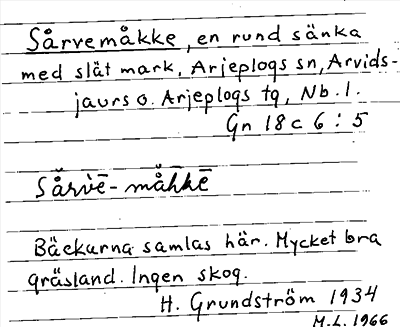 Sårvemåkke, en rund sänka
med slät mark, Arjeplogs sn, Arvids-
jaurs o. Arjeplogs tg, Nb. l.
Gn 18 c 6 : 5
Sårvē - måhkē
Bäckarna samlas här. Mycket bra
gräsland. Ingen skog.
H. Grundström 1934
M.L. 1966